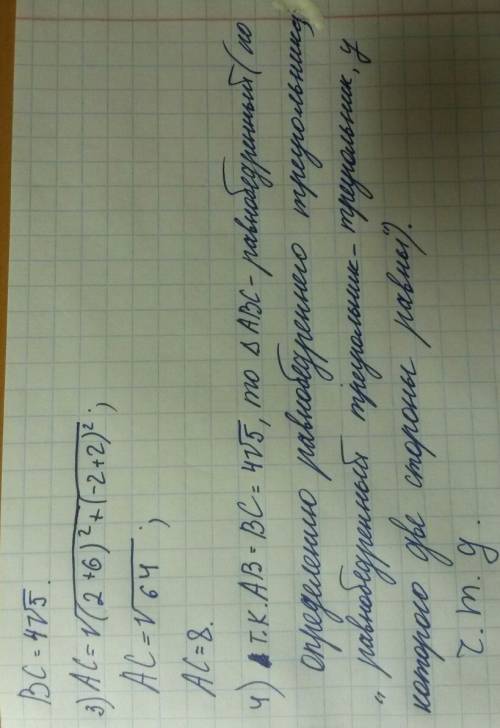 BC = 4√5.
3) AC = √(2+6)² + (-2+2)² ;
AC = √64 ;
AC = 8.
4) т.к. AB = BC = 4√5, то △ABC - равнобедренный (по
определению равнобедреннего треугольника
„равнобедренный треугольник - треугольник, у
которого две стороны равны").
ч. т. д.